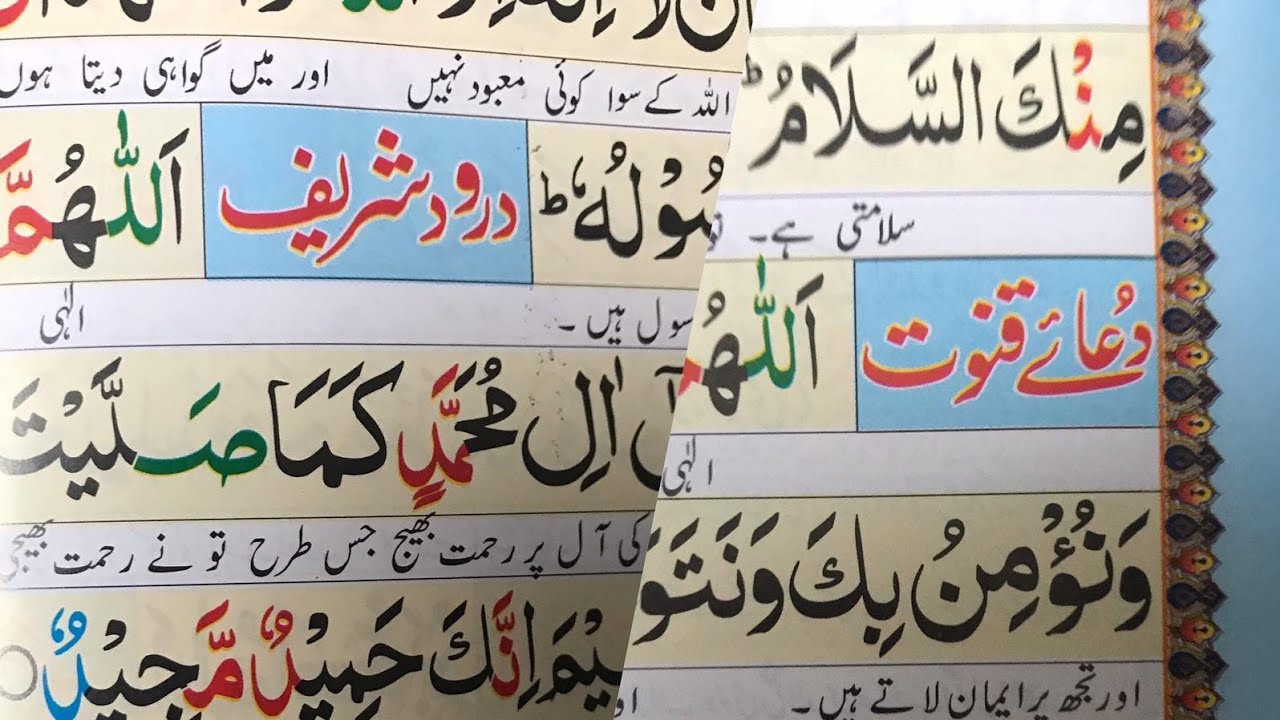 اللہ کے سوا کوئی معبود نہیں اور میں گواہی دیتا ہوں
سُوْلُهٗ ط درود شریف اَللّٰهُمَّ
سول ہیں ۔ الٰہی
اٰلِ مُحَمَّدٍ كَمَا صَلَّيْتَ
کی آل پر رحمت بھیج جس طرح تو نے رحمت بھیجی
يْمَ اِنَّكَ حَمِيْدٌ مَّجِيْدٌ
مِنْكَ السَّلَامُ ط
سلامتی ہے ۔
دُعائے قنوت اَللّٰهُمَّ
الٰہی
وَنُؤْمِنُ بِكَ وَنَتَوَ
اور تجھ پر ایمان لاتے ہیں ۔ اور